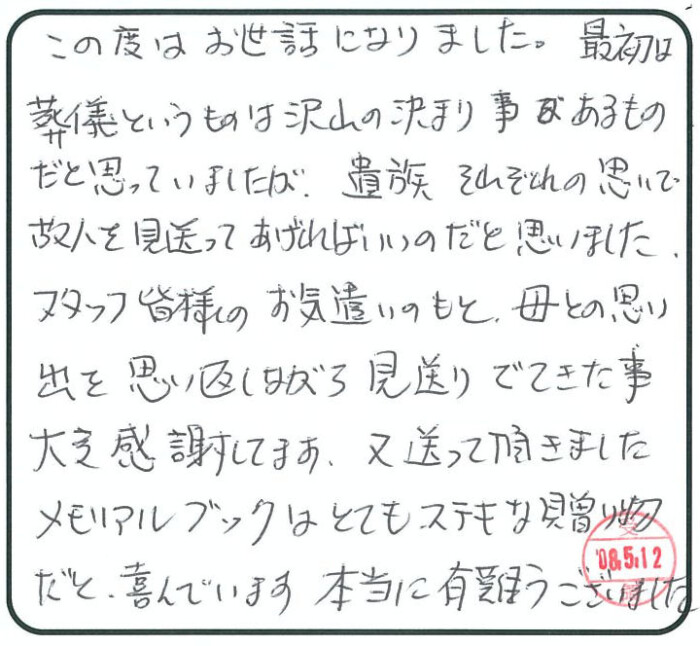 この度はお世話になりました。最初は
葬儀というものは沢山の決まり事があるもの
だと思っていましたが、遺族それぞれの思いで
故人を見送ってあげればいいのだと思いました、
スタッフ皆様のお気遣いのもと、母との思い
出を思い返しながら見送りできた事
大変感謝してます、又送って頂きました
メモリアルブックはとてもステキな贈り物
だと、喜んでいます 本当に有難うございました
受
'08.5.12